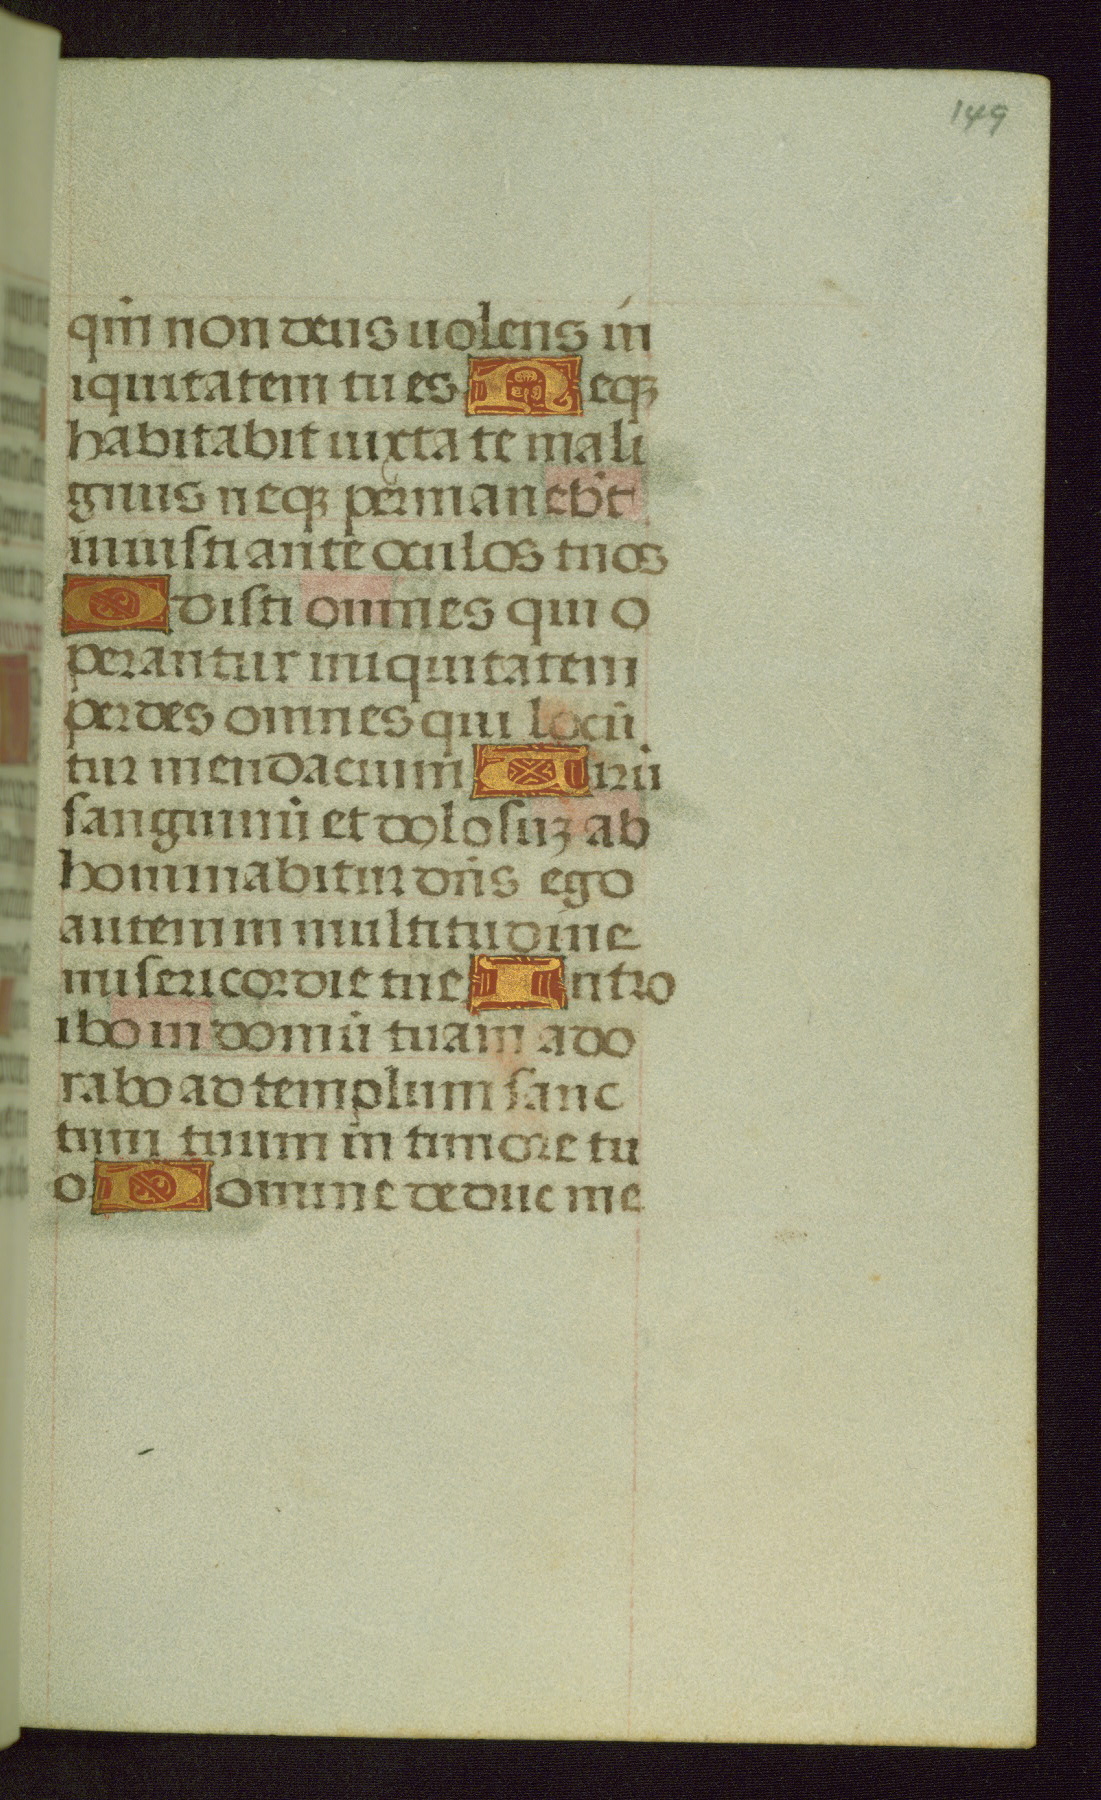 149
qm̄ non deus uolens in
iquitatem tu es Neqꝫ
habitabit iuxta te mali
gnus neqꝫ permanebt̄
iniusti ante oculos tuos
Odisti omnes qui o
perantur iniquitatem
perdes omnes qui locū
tur mendacium Uirū
sanguinū et dolosuꝫ ab
hominabitur dn̄s ego
autem in multitudine
misericordie tue Intro
ibo in domū tuam ado
rabo ad templum sanc
tum tuum in timore tu
o Domine deduc me